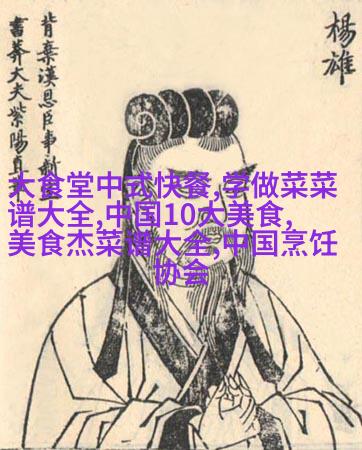 楊雄
背棄漢恩臣事新
書莽大夫紫陽直
大食堂中式快餐,学做菜菜
谱大全,中国10大美食,
美食杰菜谱大全,中国烹饪
协会